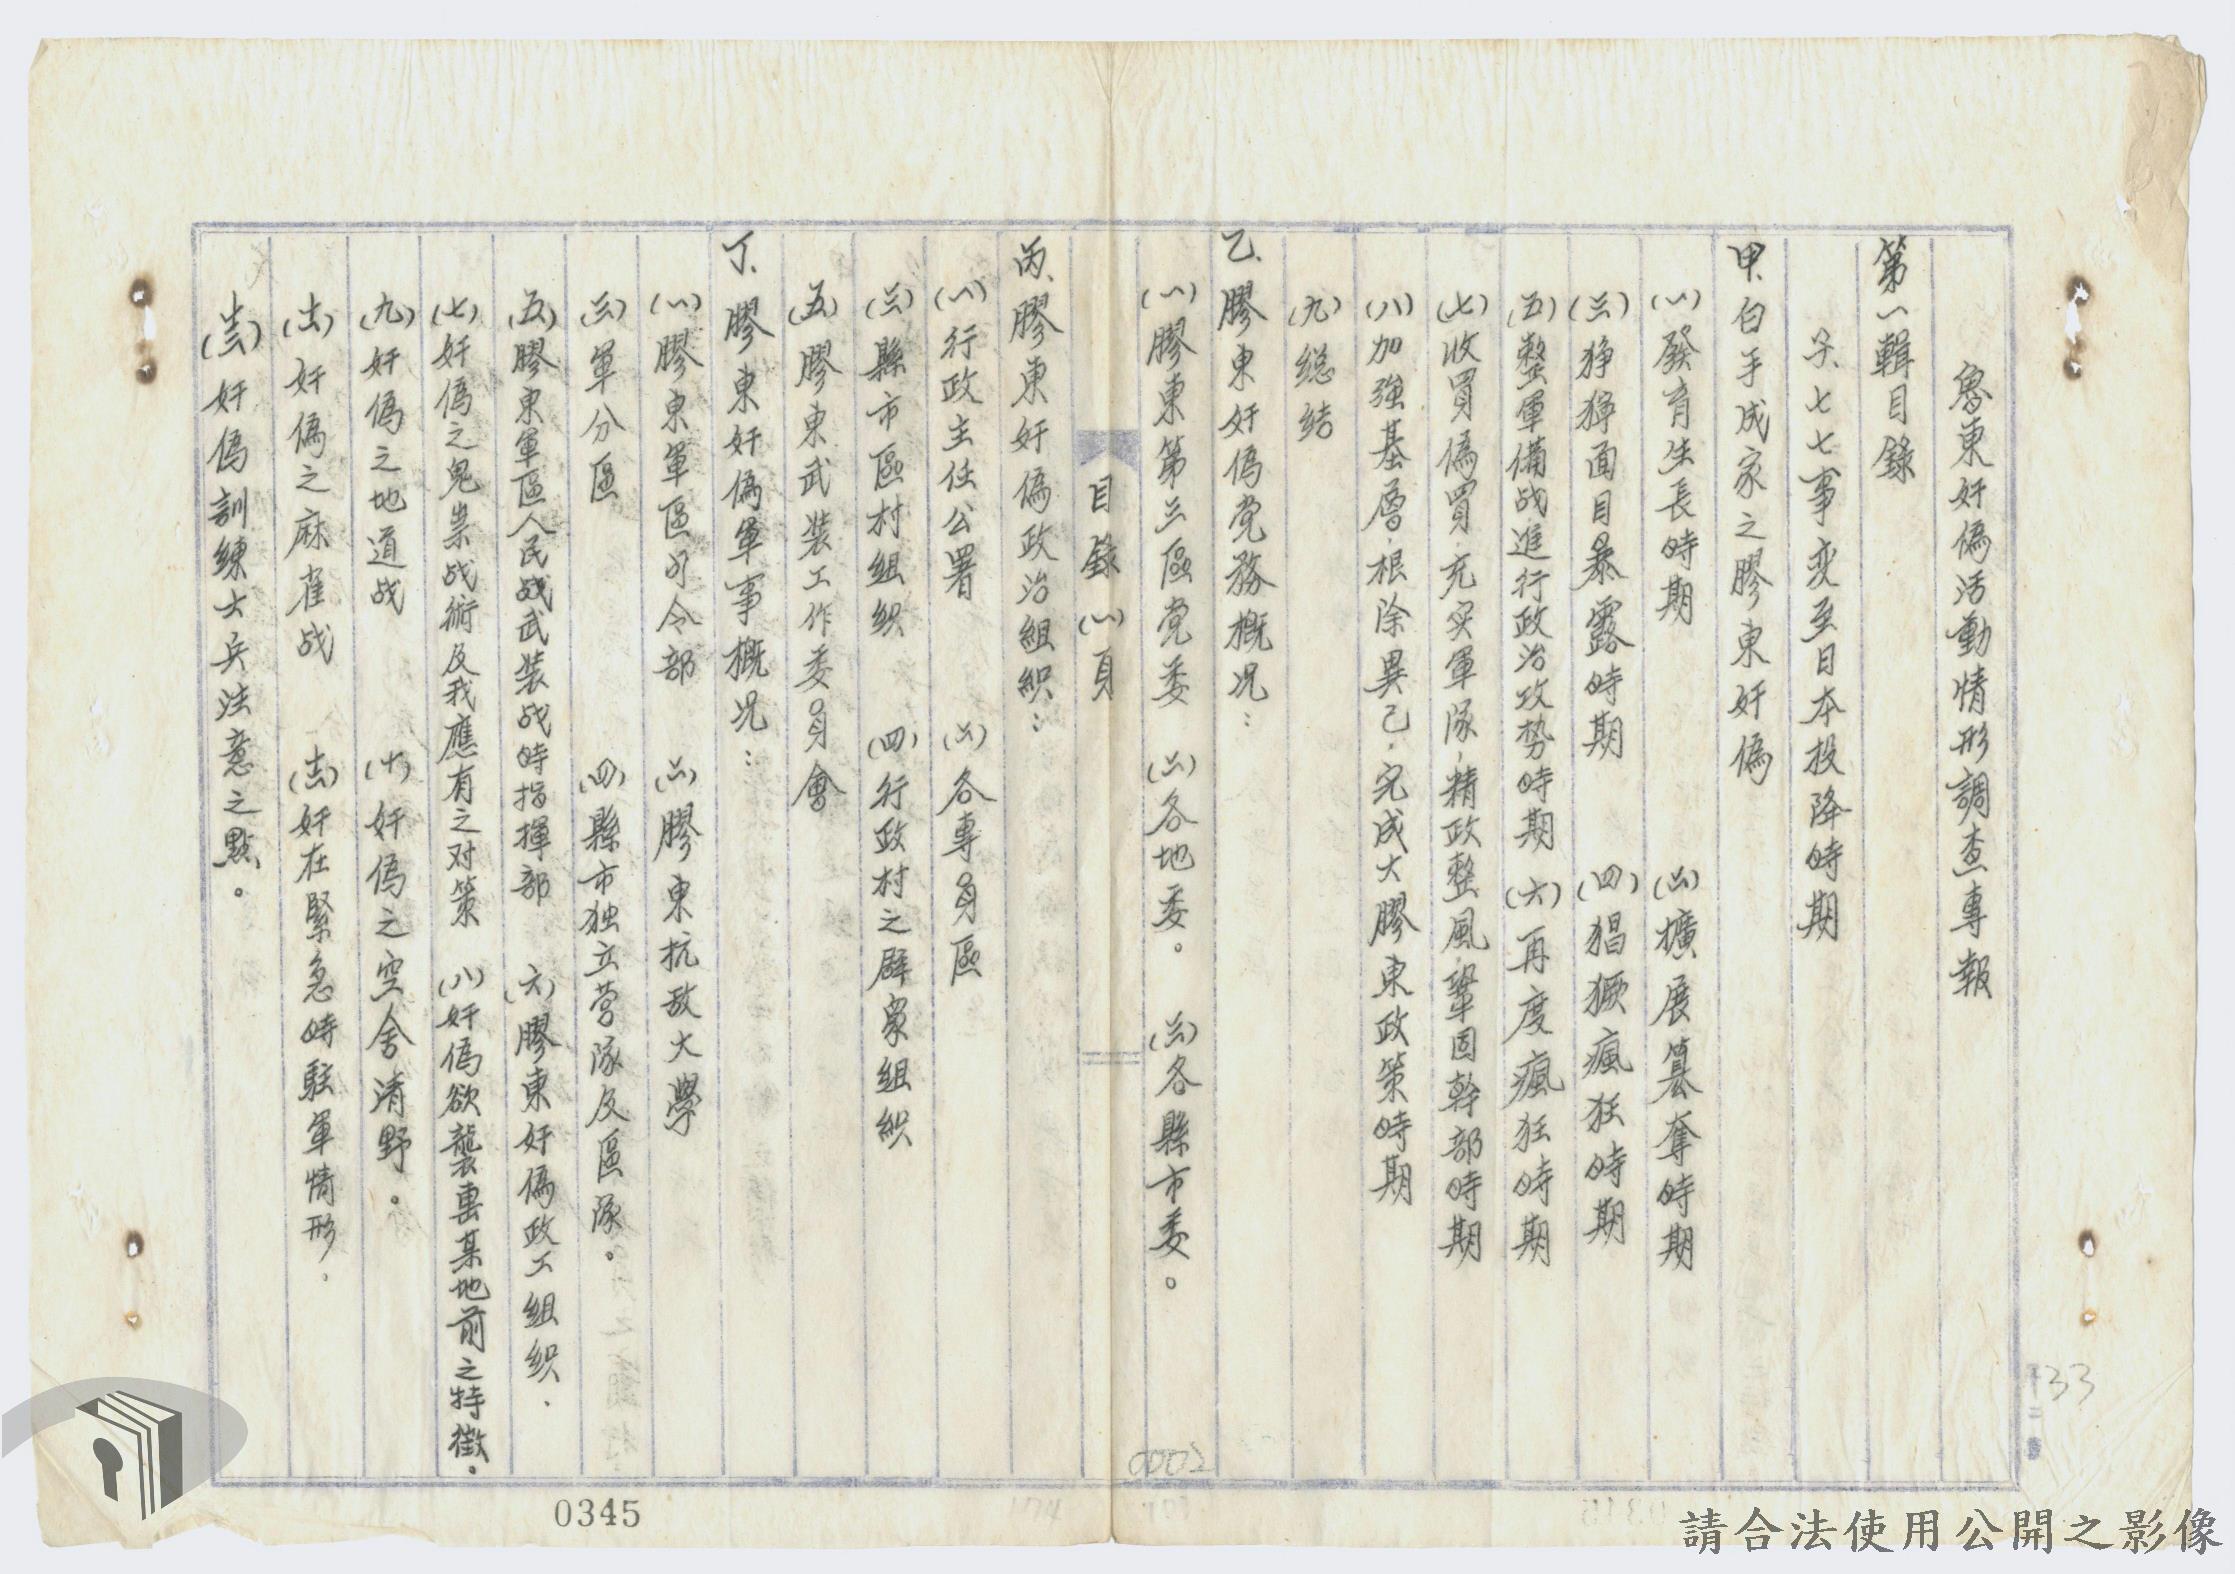 魯東奸偽活動情形調查專報
第一輯目錄
子、七七事変至日本投降時期
甲、白手成家之膠東奸偽
(一)發育生長時期 (二)擴展篡奪時期
(三)猙獰面目暴露時期 (四)猖獗瘋狂時期
(五)整軍備战進行政治攻势時期 (六)再度瘋狂時期
(七)收買偽軍,充实軍隊,精政整風,鞏固幹部時期
(八)加強基層,根除異己,完成大膠東政策時期
(九)總結
乙、膠東奸偽党務概况:
(一)膠東第三區党委 (二)各地委。 (三)各縣市委。
目錄(一)頁
丙、膠東奸偽政治組織:
(一)行政主任公署 (二)各專員區
(三)縣市區村組织 (四)行政村之羣眾組织
(五)膠東武装工作委員會
丁、膠東奸偽軍事概况:
(一)膠東軍區司令部 (二)膠東抗敌大學
(三)軍分區 (四)縣市独立营隊及區隊。
(五)膠東軍區人民战武装战時指揮部 (六)膠東奸偽政工組织.
(七)奸偽之鬼祟战術及我應有之对策 (八)奸偽欲襲擊某地前之特徵。
(九)奸偽之地道战 (十)奸偽之空舍清野。
(十一)奸偽之麻雀战 (十二)奸在緊急時駐軍情形.
(十三)奸偽訓練士兵注意之點。
133
0002
0345
請合法使用公開之影像